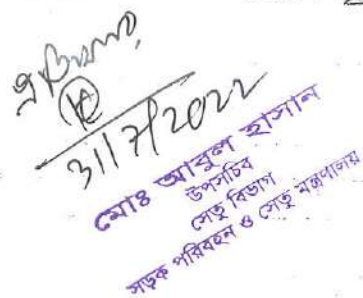 31/7/2022
মোঃ আবুল হাসান
উপসচিব
সেতু বিভাগ
সড়ক পরিবহন ও সেতু মন্ত্রণালয়